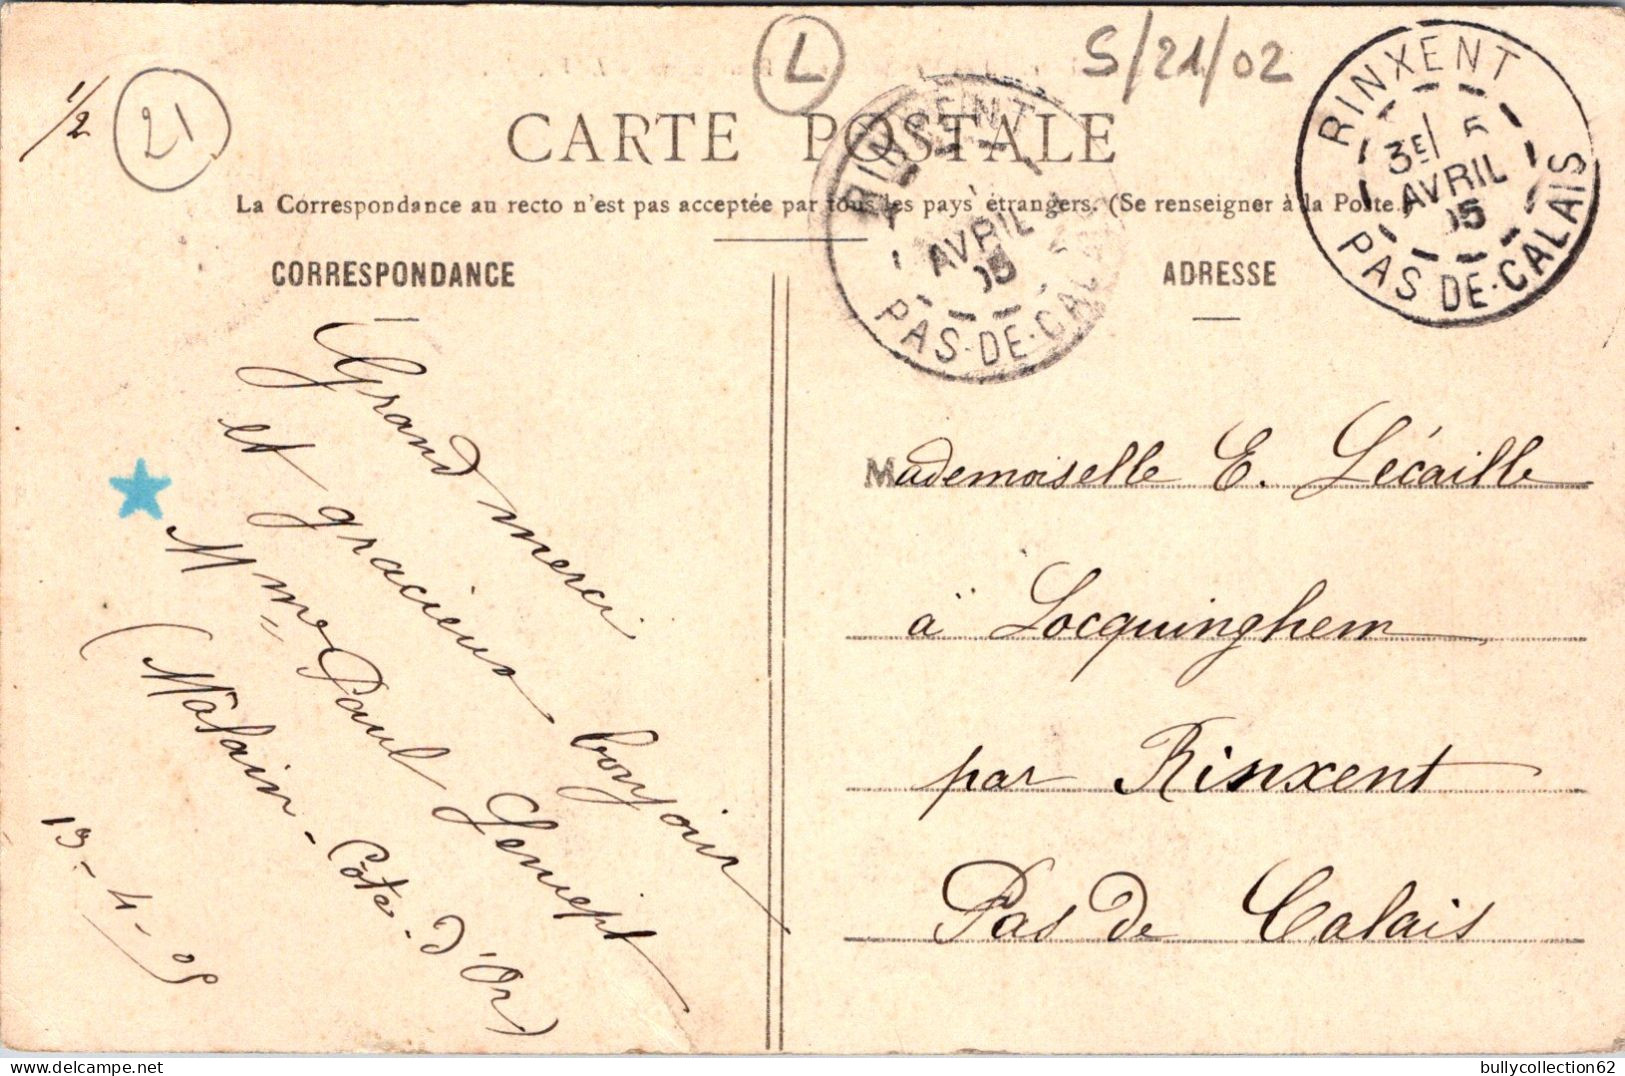 1/2
21
L
S/21/02
CARTE POSTALE
La Correspondance au recto n'est pas acceptée par tous les pays étrangers. (Se renseigner à la Poste.)
RINXENT
AVRIL
05
PAS-DE-CALAIS
RINXENT
3E/ 5
AVRIL
05
PAS-DE-CALAIS
CORRESPONDANCE
Grand merci
et gracieux bonjour
Mme Paul
(Mâlain - Côte-d'Or)
19-4-05
ADRESSE
Mademoiselle E. Lécaille
à Locquinghem
par Rinxent
Pas de Calais
bullycollection62